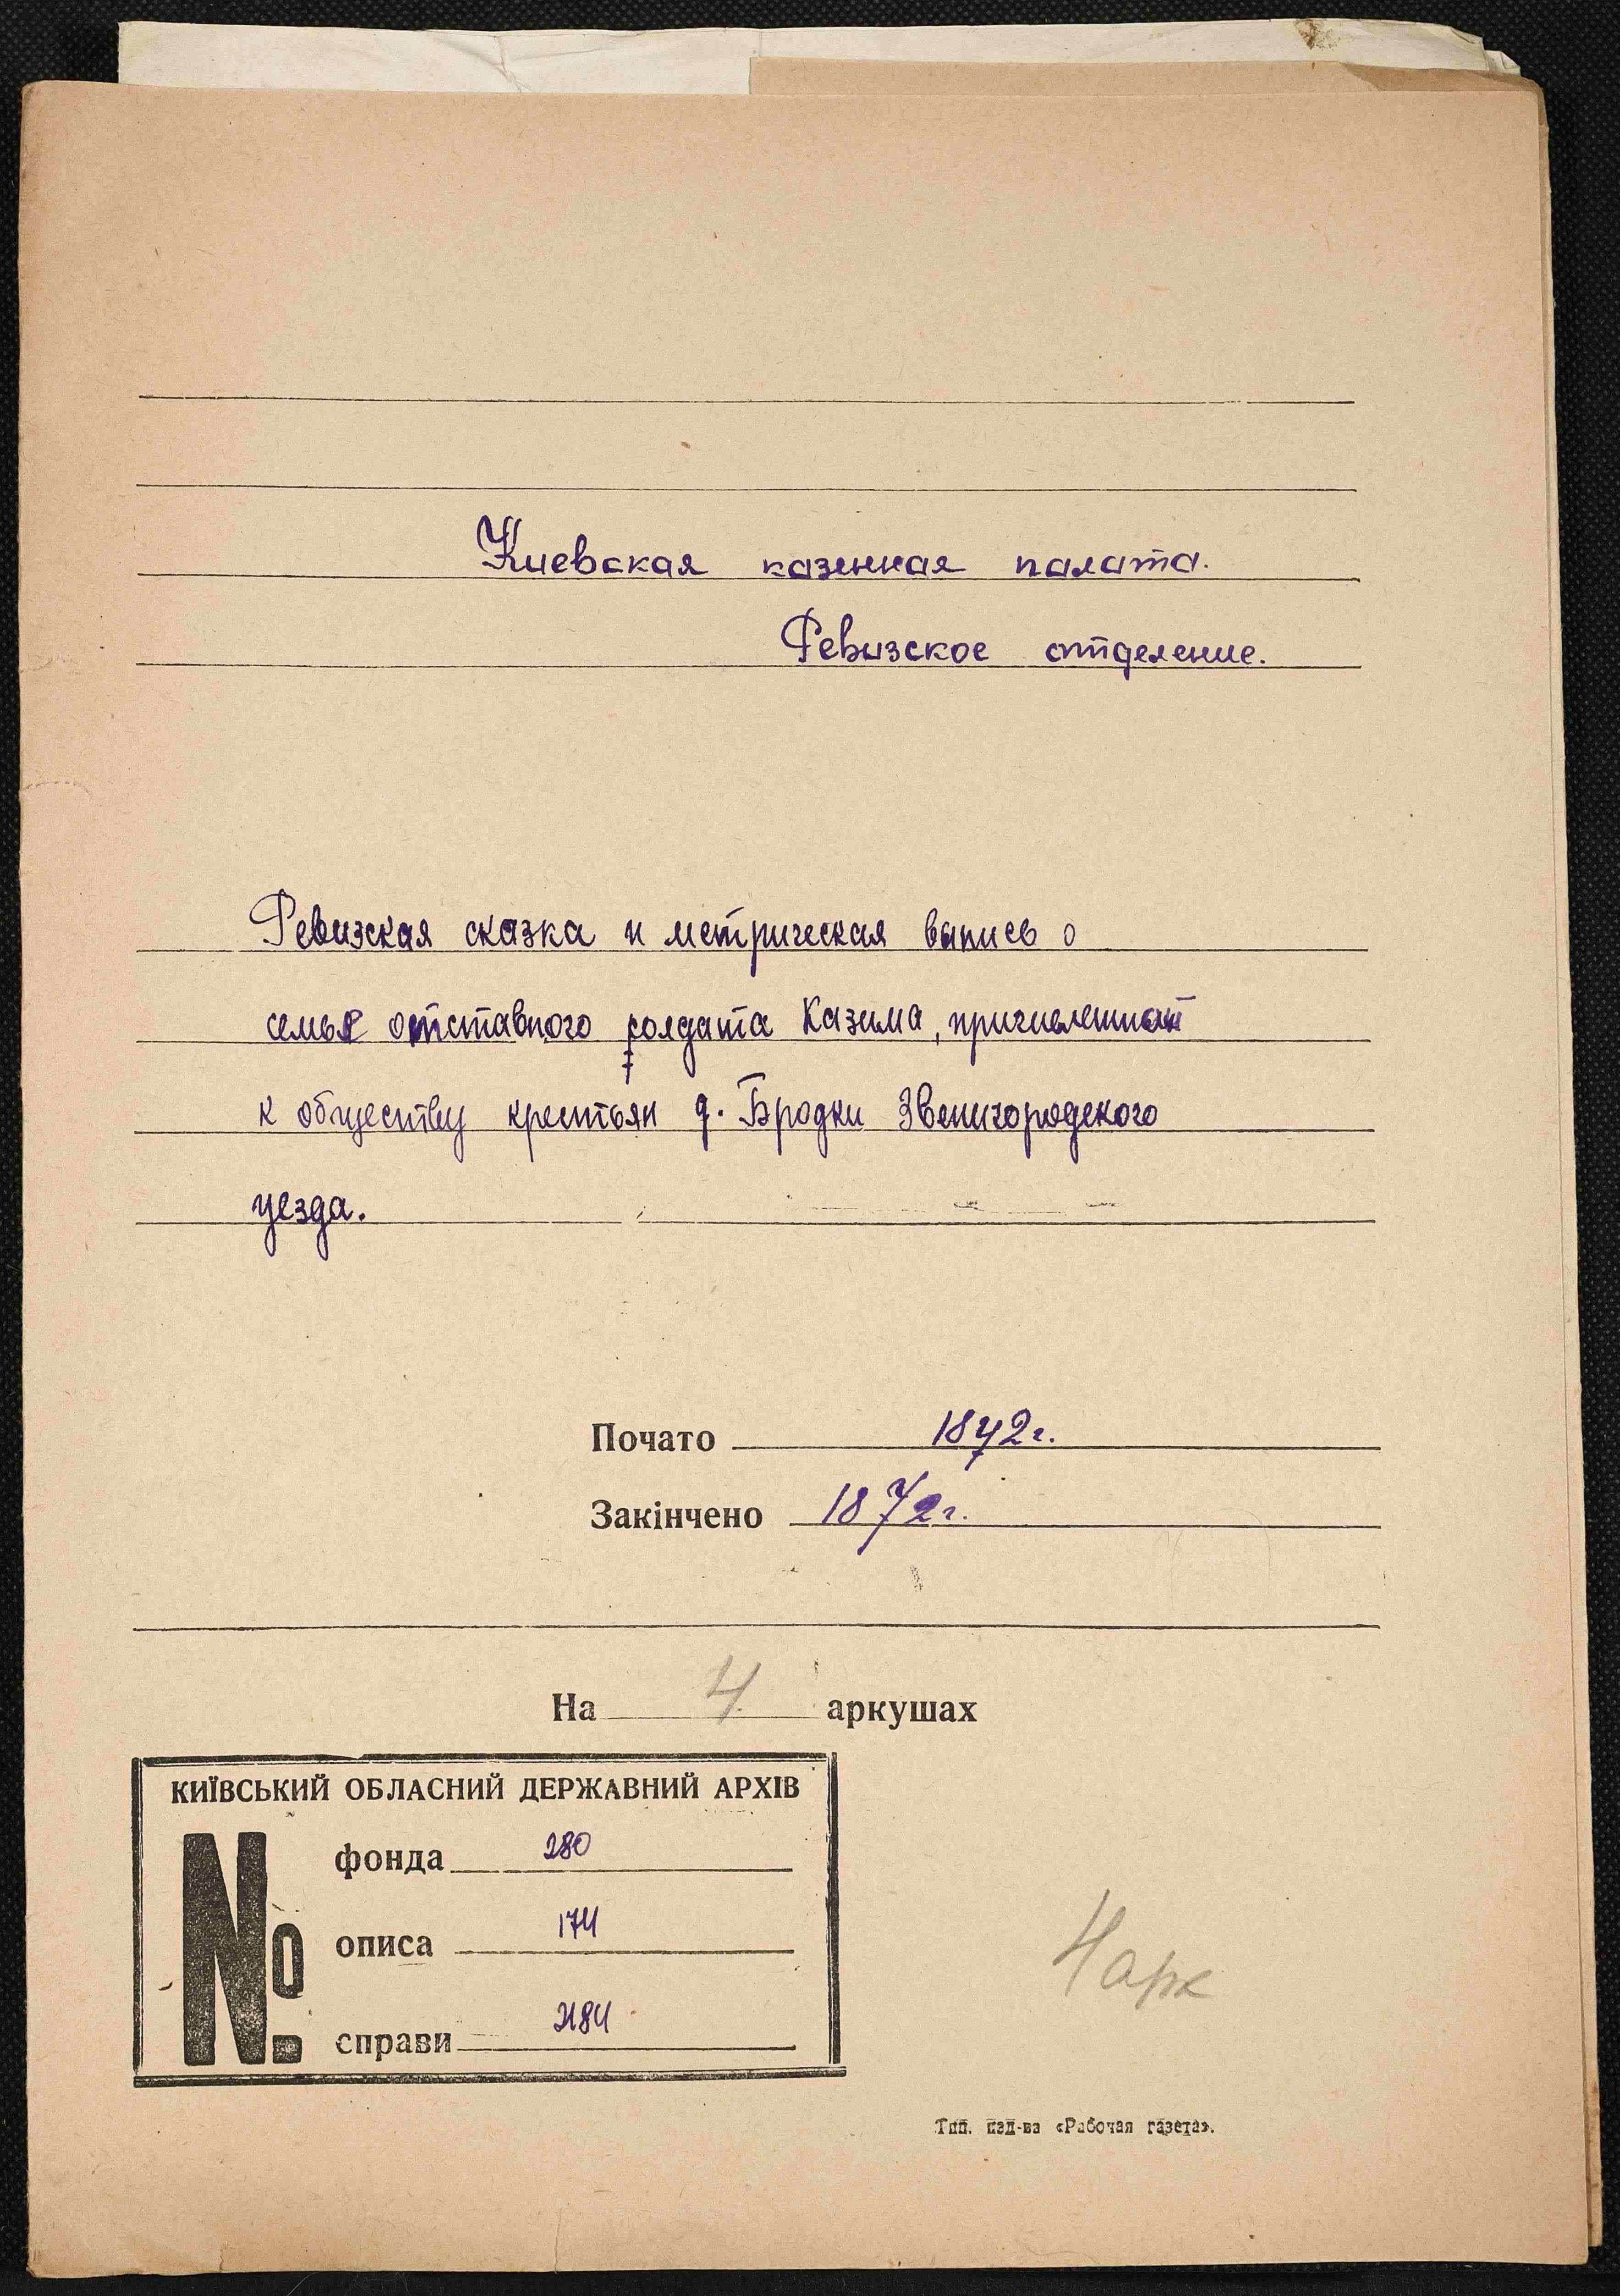 Киевская казенная палата.
Ревизское отделение.
Ревизская сказка и метрическая выпись о
семье отставного солдата Казима, причисленной
к обществу крестьян д. Бродки Звенигородского
уезда.
Почато 1872 г.
Закінчено 1872 г.
На 4 аркушах
КИЇВСЬКИЙ ОБЛАСНИЙ ДЕРЖАВНИЙ АРХІВ
№ фонда 280
описа 174
справи 2184
4 арк
Тип. изд-ва «Рабочая газета».